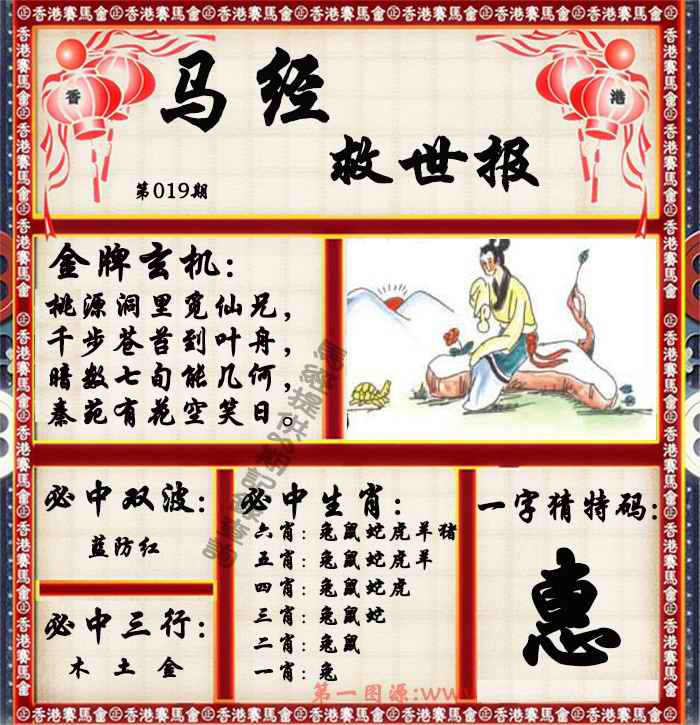 香港賽馬會
香 港
马经
救世报
第019期
金牌玄机:
桃源洞里觅仙兄，
千步苍苔到叶舟，
暗数七旬能几何，
秦苑有花空笑日。
必中双波:
蓝防红
必中三行:
木 土 金
必中生肖:
六肖: 兔鼠蛇虎羊猪
五肖: 兔鼠蛇虎羊
四肖: 兔鼠蛇虎
三肖: 兔鼠蛇
二肖: 兔鼠
一肖: 兔
一字猜特码:
惠
第一图源:www